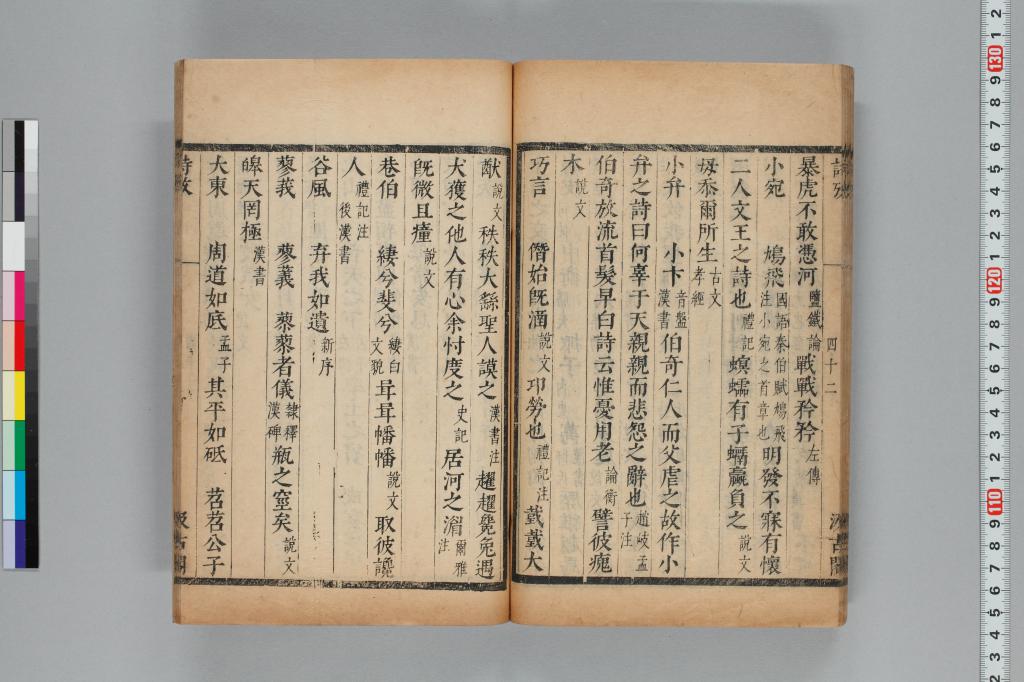 暴虎不敢憑河鹽鐵論戰戰矜矜左傳
小宛　鳩飛國語秦伯賦鳩飛注小宛之首章也明發不寐有懷
二人文王之詩也禮記螟蠕有子蠣蠃負之說文
毋忝爾所生古文孝經
小弁　小卞音盤漢書伯奇仁人而父虐之故作小
弁之詩曰何辜于天親親而悲怨之辭也趙岐孟子注
伯奇放流首髮早白詩云惟憂用老論衡譬彼瘣
木說文
巧言　僭始旣涵說文卭勞也禮記注㦻㦻大
猷說文秩秩大繇聖人謨之漢書注趯趯毚兔遇
犬獲之他人有心余忖度之史記居河之湄爾雅注
旣微且瘇說文
巷伯　緀兮斐兮緀白文貌咠咠幡幡說文取彼讒
人禮記注後漢書
谷風　弃我如遺新序
蓼莪　蓼義　蓼蓼者儀隸釋漢碑瓶之窒矣說文
皞天罔極漢書
大東　周道如底孟子其平如砥　苕苕公子
詩攷
四十二
汲古閣